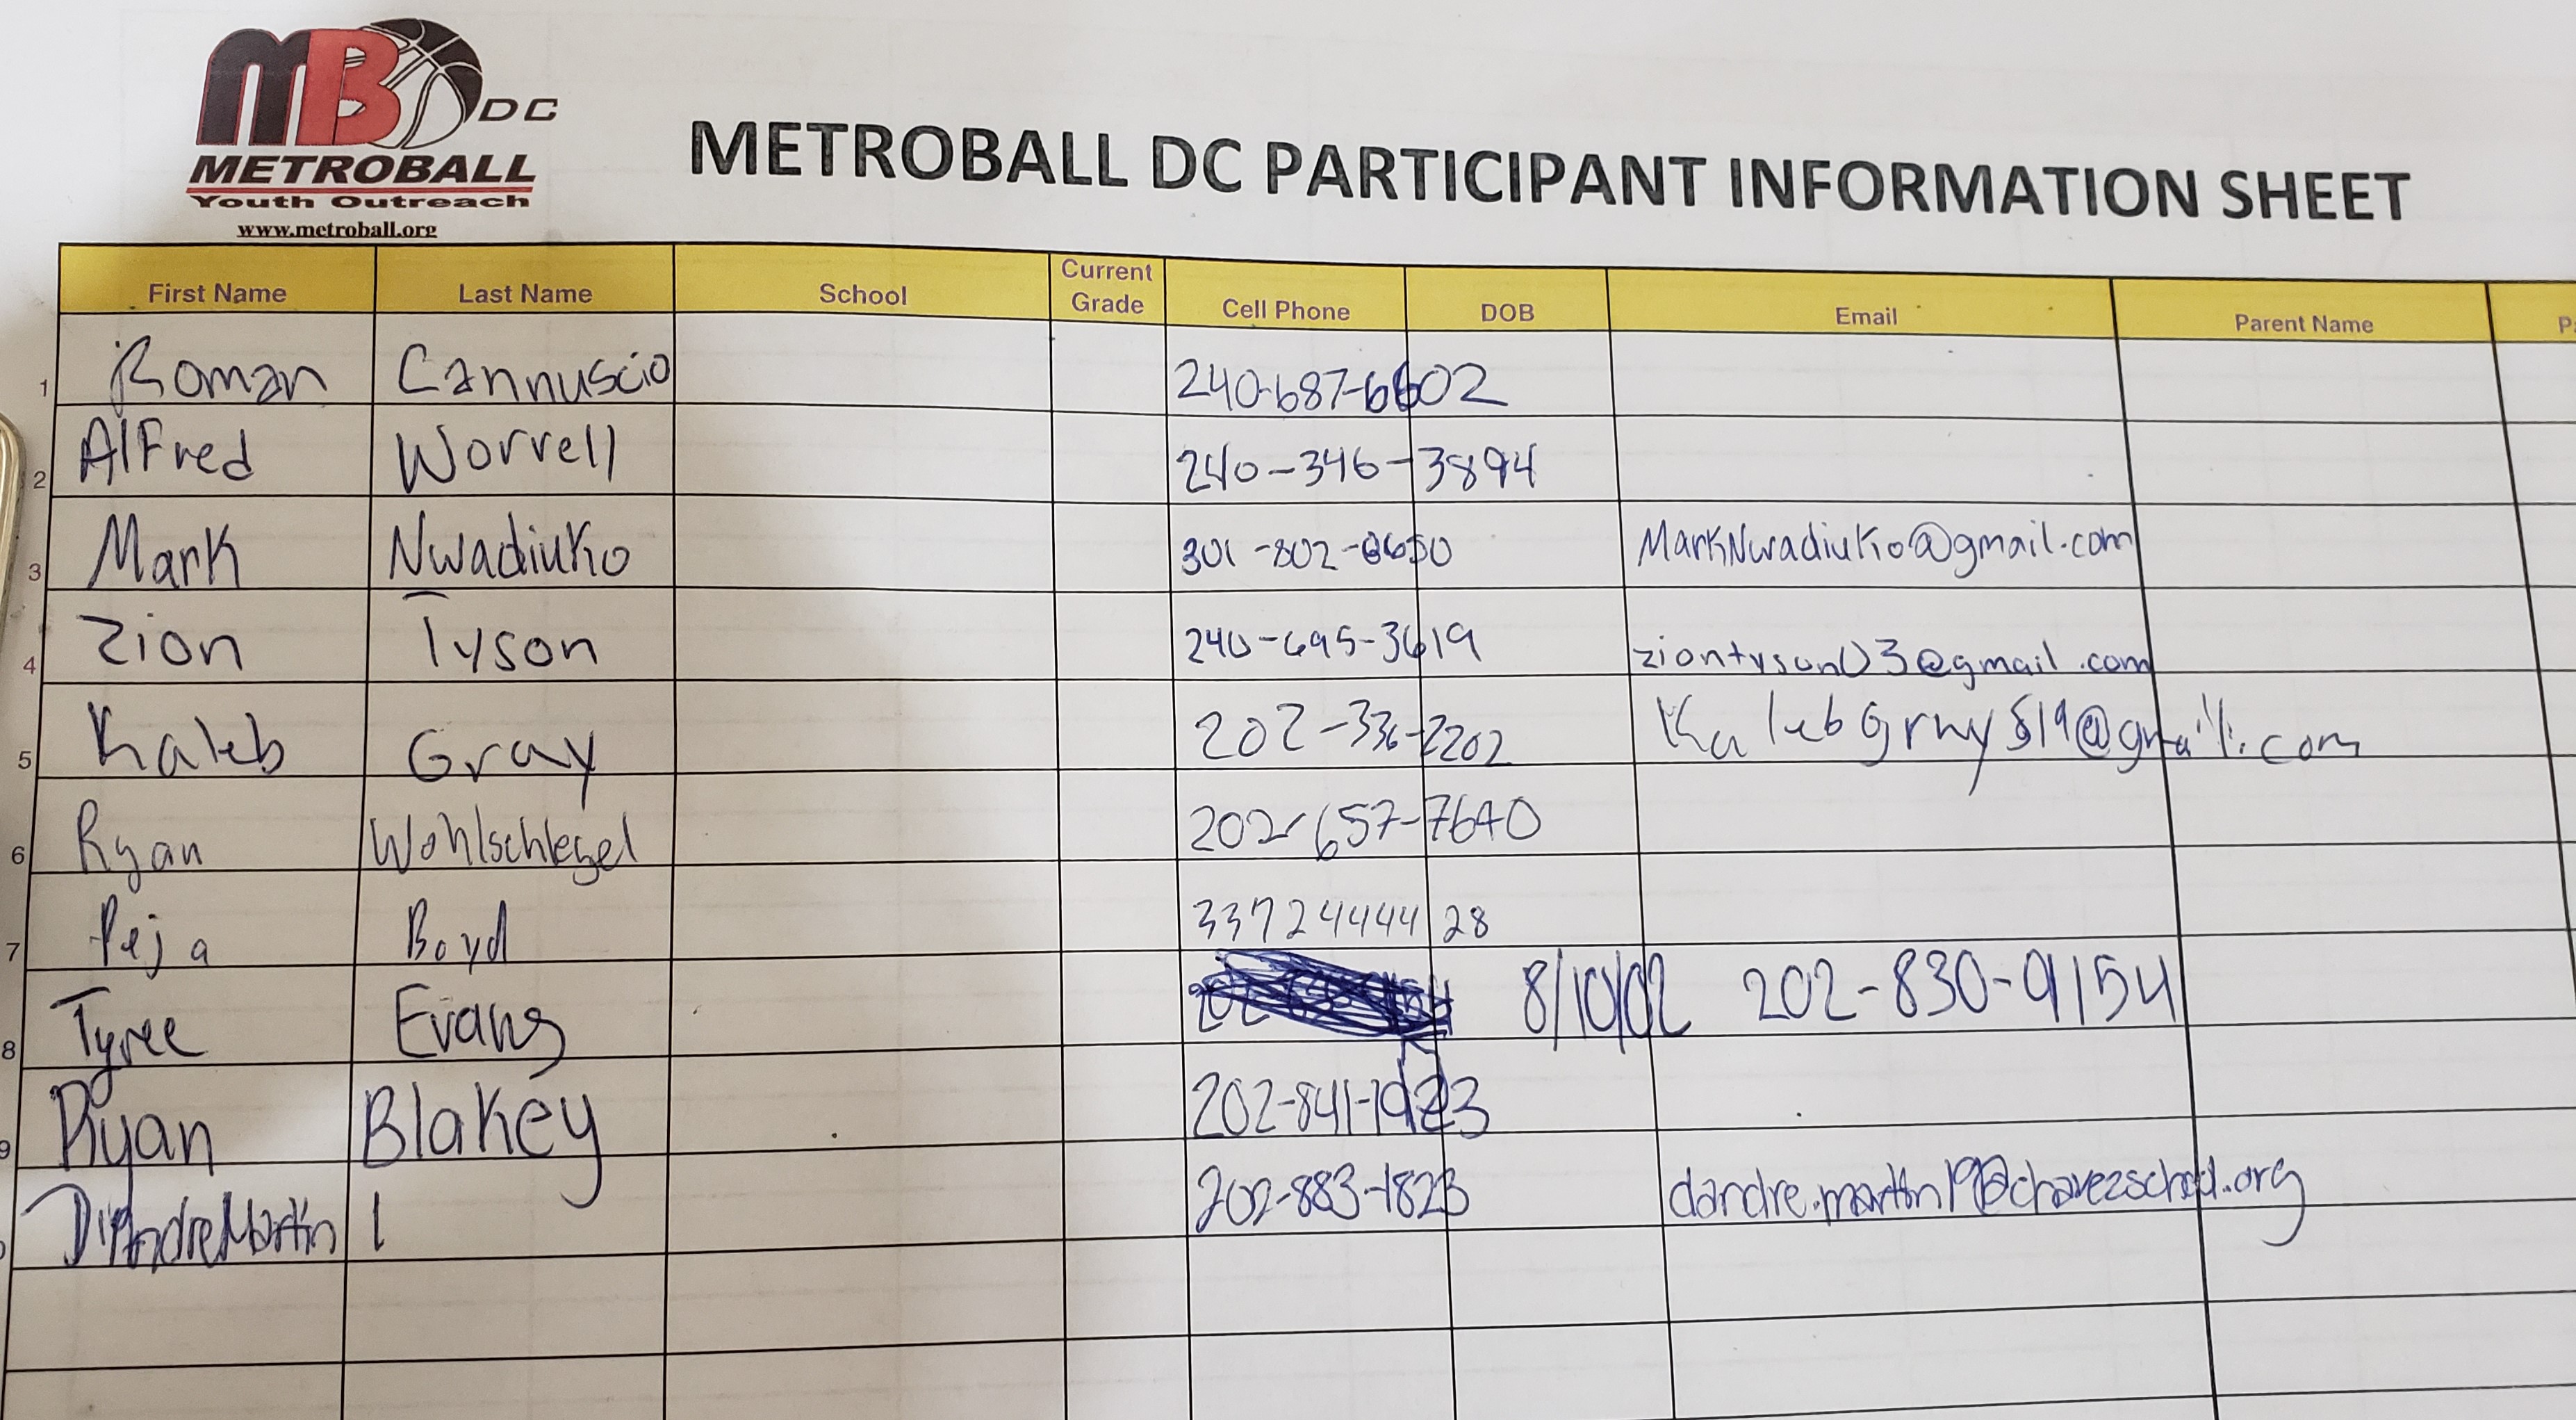 MB DC
METROBALL
Youth Outreach
www.metroball.org
METROBALL DC PARTICIPANT INFORMATION SHEET
First Name Last Name School Current Grade Cell Phone DOB Email Parent Name
1 Roman Cannuscio 240-687-6602
2 AlFred Worrell 240-346-3894
3 Mark Nwadiuko 301-802-0650 MarkNwadiuko@gmail.com
4 Zion Tyson 240-695-3619 ziontyson03@gmail.com
5 Kaleb Gray 202-336-2202 KalebGray819@gmail.com
6 Ryan Wohlschlegel 202-657-7640
7 Peja Boyd 3372444428
8 Tyree Evans 8/10/02 202-830-9154
9 Ryan Blakey 202-841-1923
DeAndre Martin 202-883-1823 dandre.martin19@chavezschool.org